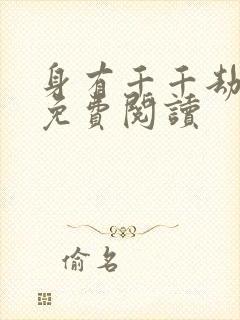 身有千千劫
免費閱讀
偷名